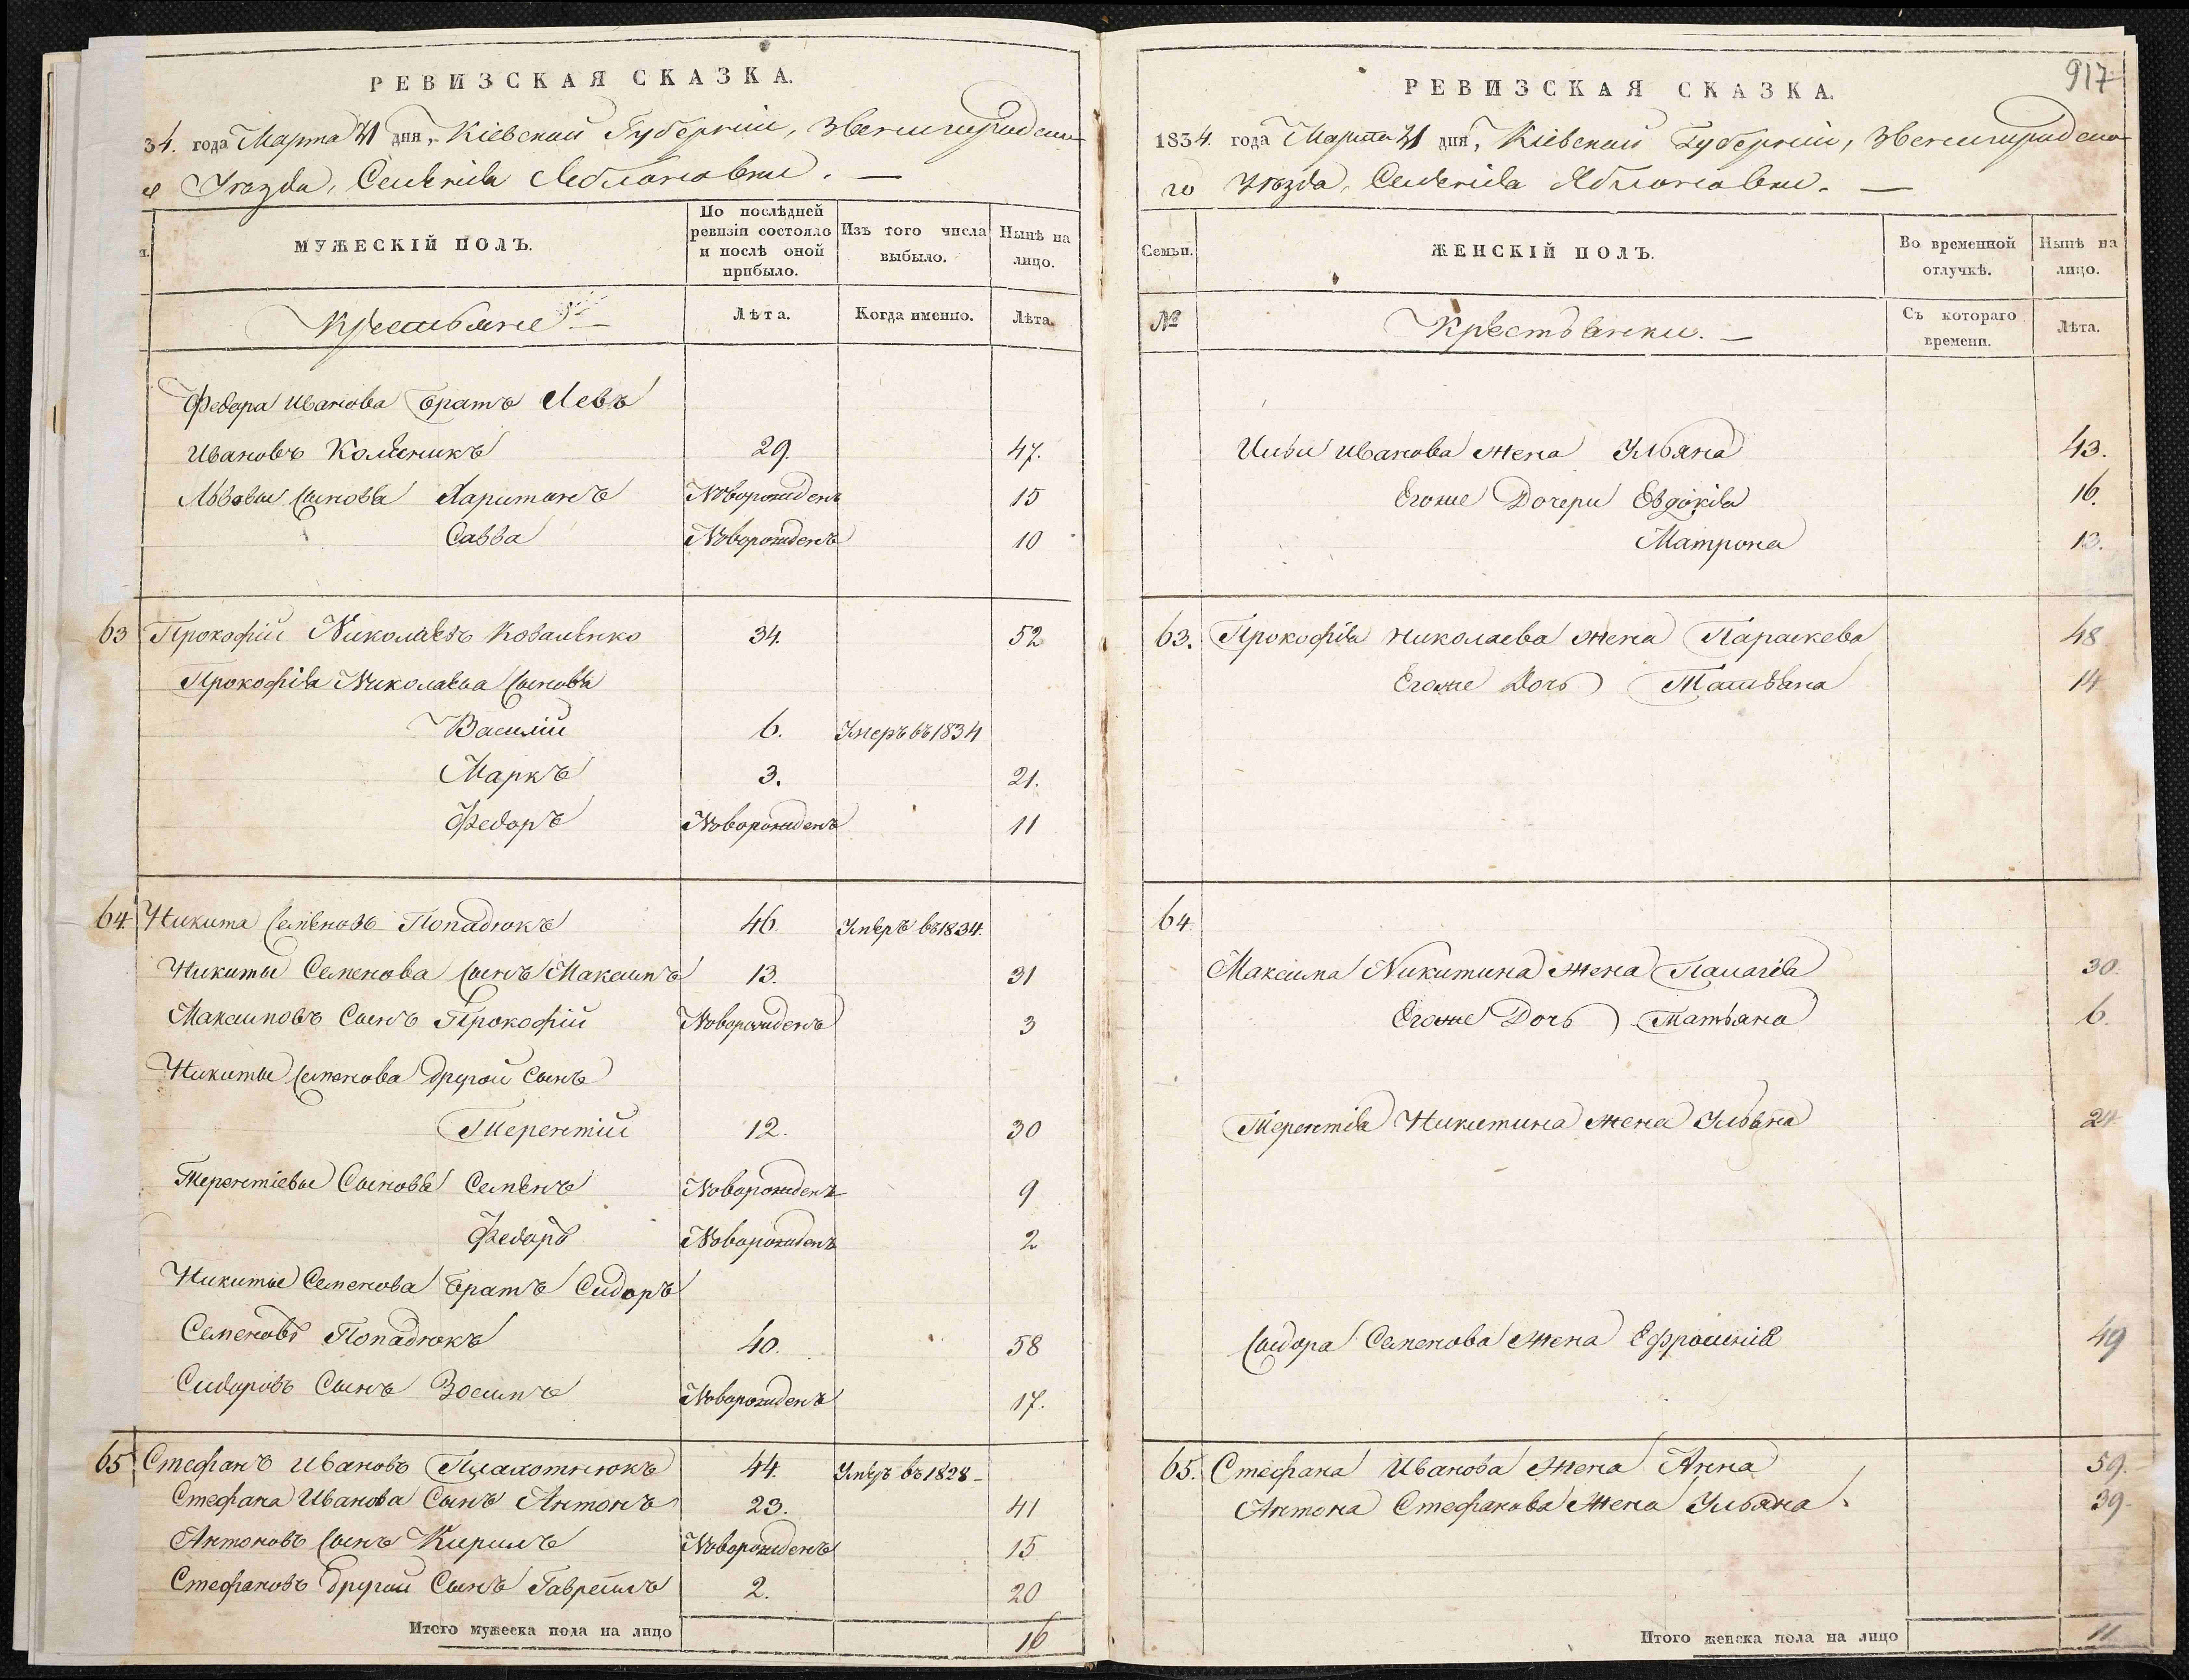 РЕВИЗСКАЯ СКАЗКА.
34. года Марта 31 дня, Кіевской Губерніи, Звенигородска
Уезда, Селенія Яблоновки. —
МУЖЕСКІЙ ПОЛЪ.
По послѣдней ревизіи состояло и послѣ оной прибыло.
Изъ того числа выбыло.
Нынѣ на лицо.
Крестьяне —
Лѣта.
Когда именно.
Лѣта.
Федора Иванова братъ Левъ
Ивановъ Коленикъ 29. 47.
Львовы Сыновья Харитонъ Новорожденъ 15
Савва Новорожденъ 10
63 Прокофій Николаевъ Коваленко 34. 52
Прокофія Николаева Сыновья
Василій 6. Умеръ въ 1834
Маркъ 3. 21.
Федоръ Новорожденъ 11
64. Никита Семеновъ Попадюкъ 46. Умеръ въ 1834.
Никиты Семенова сынъ Максимъ 13. 31
Максимовъ Сынъ Прокофій Новорожденъ 3
Никиты Семенова другой Сынъ
Терентій 12. 30
Терентіевы Сыновья Семенъ Новорожденъ 9
Федоръ Новорожденъ 2
Никиты Семенова братъ Сидоръ
Семеновъ Попадюкъ 40. 58
Сидоровъ Сынъ Зосимъ Новорожденъ 17.
65 Стефанъ Ивановъ Плахотнюкъ 44. Умеръ въ 1828 -
Стефана Иванова Сынъ Антонъ 23. 41
Антоновъ сынъ Кирилъ Новорожденъ 15
Стефановъ другой Сынъ Гаврейлъ 2. 20
Итого мужеска пола на лицо 16
917
РЕВИЗСКАЯ СКАЗКА.
1834. года Марта 31 дня, Кіевской Губерніи, Звенигородска-
го Уѣзда, Селенія Яблоновки. —
Семьи.
ЖЕНСКІЙ ПОЛЪ.
Во временной отлучкѣ.
Нынѣ на лицо.
№
Крестьянки. —
Съ котораго времени.
Лѣта.
Иванова жена Ульяна 43.
Егоже Дочери Евдокія 16.
Матрона 13.
63. Прокофія Николаева жена Параскева 48
Егоже Дочь Татьяна 14
64.
Максима Никитина жена Палагія 30.
Егоже Дочь Татьяна 6.
Терентія Никитина жена Ульяна 24
Сидора Семенова жена Ефросинія 49
65. Стефана Иванова жена Анна 59.
Антона Стефанова жена Ульяна. 39.
Итого женска пола на лицо 11